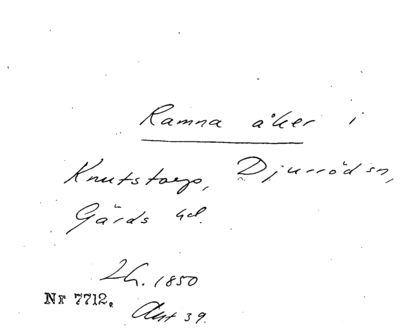 Ramna åker i
Knutstorp, Djurröd sn,
Gärds hd.
Lh. 1850
Nr 7712.
Akt 39.